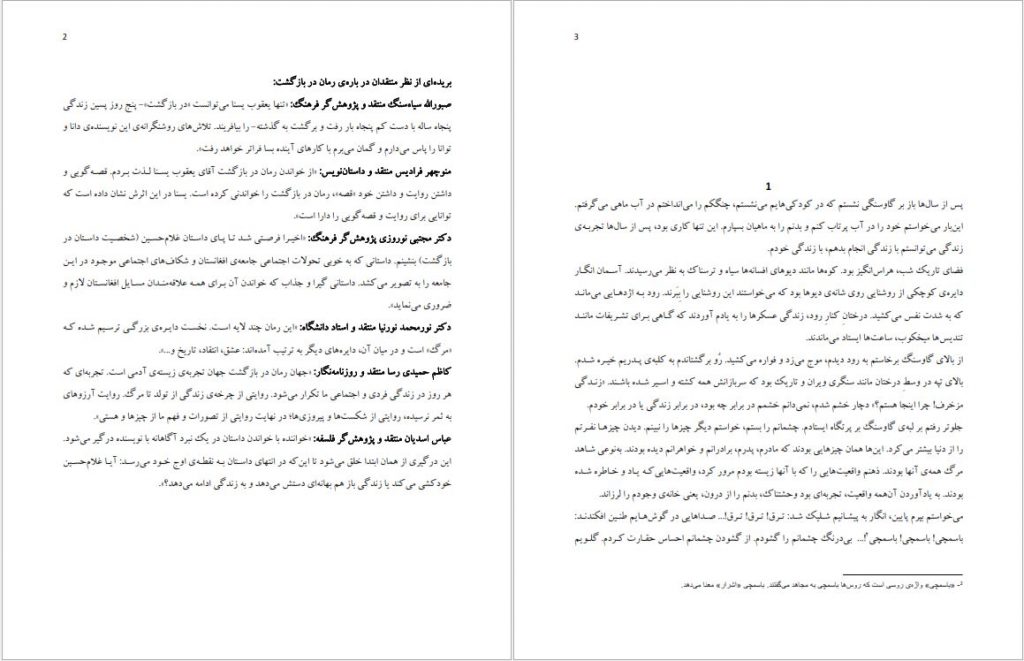 2
بریده‌ای از نظر منتقدان در باره‌ی رمان در بازگشت:
صبورالله سیاه‌سنگ منتقد و پژوهش‌گر فرهنگ: «تنها یعقوب یسنا می‌توانست «در بازگشت»- پنج روز پسین زندگی
پنجاه ساله با دست کم پنجاه بار رفت و برگشت به گذشته- را بیافریند. تلاش‌های روشنگرانه‌ی این نویسنده‌ی دانا و
توانا را پاس می‌دارم و گمان می‌برم با کارهای آینده بسا فراتر خواهد رفت».
منوچهر فرادیس منتقد و داستان‌نویس: «از خواندن رمان در بازگشت آقای یعقوب یسنا لذت بردم. قصه‌گویی و
داشتن روایت و داشتن خود «قصه»، رمان در بازگشت را خواندنی کرده است. یسنا در این اثرش نشان داده است که
توانایی برای روایت و قصه‌گویی را دارا است».
دکتر مجتبی نوروزی پژوهش‌گر فرهنگ: «اخیرا فرصتی شد تا پای داستان غلام‌حسین (شخصیت داستان در
بازگشت) بنشینم. داستانی که به خوبی تحولات اجتماعی جامعه‌ی افغانستان و شکاف‌های اجتماعی موجود در این
جامعه را به تصویر می‌کشد. داستانی گیرا و جذاب که خواندن آن برای همه علاقه‌مندان مسایل افغانستان لازم و
ضروری می‌نماید».
دکتر نورمحمد نورنیا منتقد و استاد دانشگاه: «این رمان چند لایه است. نخست دایره‌ی بزرگی ترسیم شده که
«مرگ» است و در میان آن، دایره‌های دیگر به ترتیب آمده‌اند: عشق، انتقاد، تاریخ و...».
کاظم حمیدی رسا منتقد و روزنامه‌نگار: «جهان رمان در بازگشت جهان تجربه‌ی زیسته‌ی آدمی است. تجربه‌ای که
هر روز در زندگی فردی و اجتماعی ما تکرار می‌شود. روایتی از چرخه‌ی زندگی از تولد تا مرگ. روایت آرزوهای
به ثمر نرسیده، روایتی از شکست‌ها و پیروزی‌ها؛ در نهایت روایتی از تصورات و فهم ما از چیزها و هستی».
عباس اسدیان منتقد و پژوهش‌گر فلسفه: «خواننده با خواندن داستان در یک نبرد آگاهانه با نویسنده درگیر می‌شود.
این درگیری از همان ابتدا خلق می‌شود تا این‌که در انتهای داستان به نقطه‌ی اوج خود می‌رسد: آیا غلام‌حسین
خودکشی می‌کند یا زندگی باز هم بهانه‌ای دستش می‌دهد و به زندگی ادامه می‌دهد؟».
3
1
پس از سال‌ها باز بر گاوسنگی نشستم که در کودکی‌هایم می‌نشستم، چنگکم را می‌انداختم در آب ماهی می‌گرفتم.
این‌بار می‌خواستم خود را در آب پرتاب کنم و بدنم را به ماهیان بسپارم. این تنها کاری بود، پس از سال‌ها تجربه‌ی
زندگی می‌توانستم با زندگی انجام بدهم، با زندگی خودم.
فضای تاریک شب، هراس‌انگیز بود. کوه‌ها مانند دیوهای افسانه‌ها سیاه و ترسناک به نظر می‌رسیدند. آسمان انگار
دایره‌ی کوچکی از روشنایی روی شانه‌ی دیوها بود که می‌خواستند این روشنایی را ببَرند. رود به اژدهایی می‌ماند
که به شدت نفس می‌کشید. درختانِ کنارِ رود، زندگی عسکرها را به یادم آوردند که گاهی برای تشریفات مانند
تندیس‌ها میخکوب، ساعت‌ها ایستاد می‌ماندند.
از بالای گاوسنگ برخاستم به رود دیدم، موج می‌زد و فواره می‌کشید. رُو برگشتاندم به کلبه‌ی پدریم خیره شدم.
بالای تپه در وسطِ درختان مانند سنگری ویران و تاریک بود که سربازانش همه کشته و اسیر شده باشند. «زندگی
مزخرف! چرا اینجا هستم؟» دچار خشم شدم، نمی‌دانم خشمم در برابر چه بود، در برابر زندگی یا در برابر خودم.
جلوتر رفتم بر لبه‌ی گاوسنگ بر پرتگاه ایستادم. چشمانم را بستم، خواستم دیگر چیزها را نبینم. دیدن چیزها نفرتم
را از دنیا بیشتر می‌کرد. این‌ها همان چیزهایی بودند که مادرم، پدرم، برادرانم و خواهرانم دیده بودند. به‌نوعی شاهد
مرگ همه‌ی آنها بودند. ذهنم واقعیت‌هایی را که با آنها زیسته بودم مرور کرد، واقعیت‌هایی‌که یاد و خاطره شده
بودند. به یادآوردن آن‌همه واقعیت، تجربه‌ای بود وحشتناک، بدنم را از درون، یعنی خانه‌ی وجودم را لرزاند.
می‌خواستم بپرم پایین، انگار به پیشانیم شلیک شد: ترق! ترق! ترق!... صداهایی در گوش‌هایم طنین افکندند:
باسمچی! باسمچی! باسمچی¹!... بی‌درنگ چشمانم را گشودم. از گشودن چشمانم احساس حقارت کردم. گلویم
¹- «باسمچی» واژه‌ی روسی است که روس‌ها باسمچی به مجاهد می‌گفتند. باسمچی «اشرار» معنا می‌دهد.